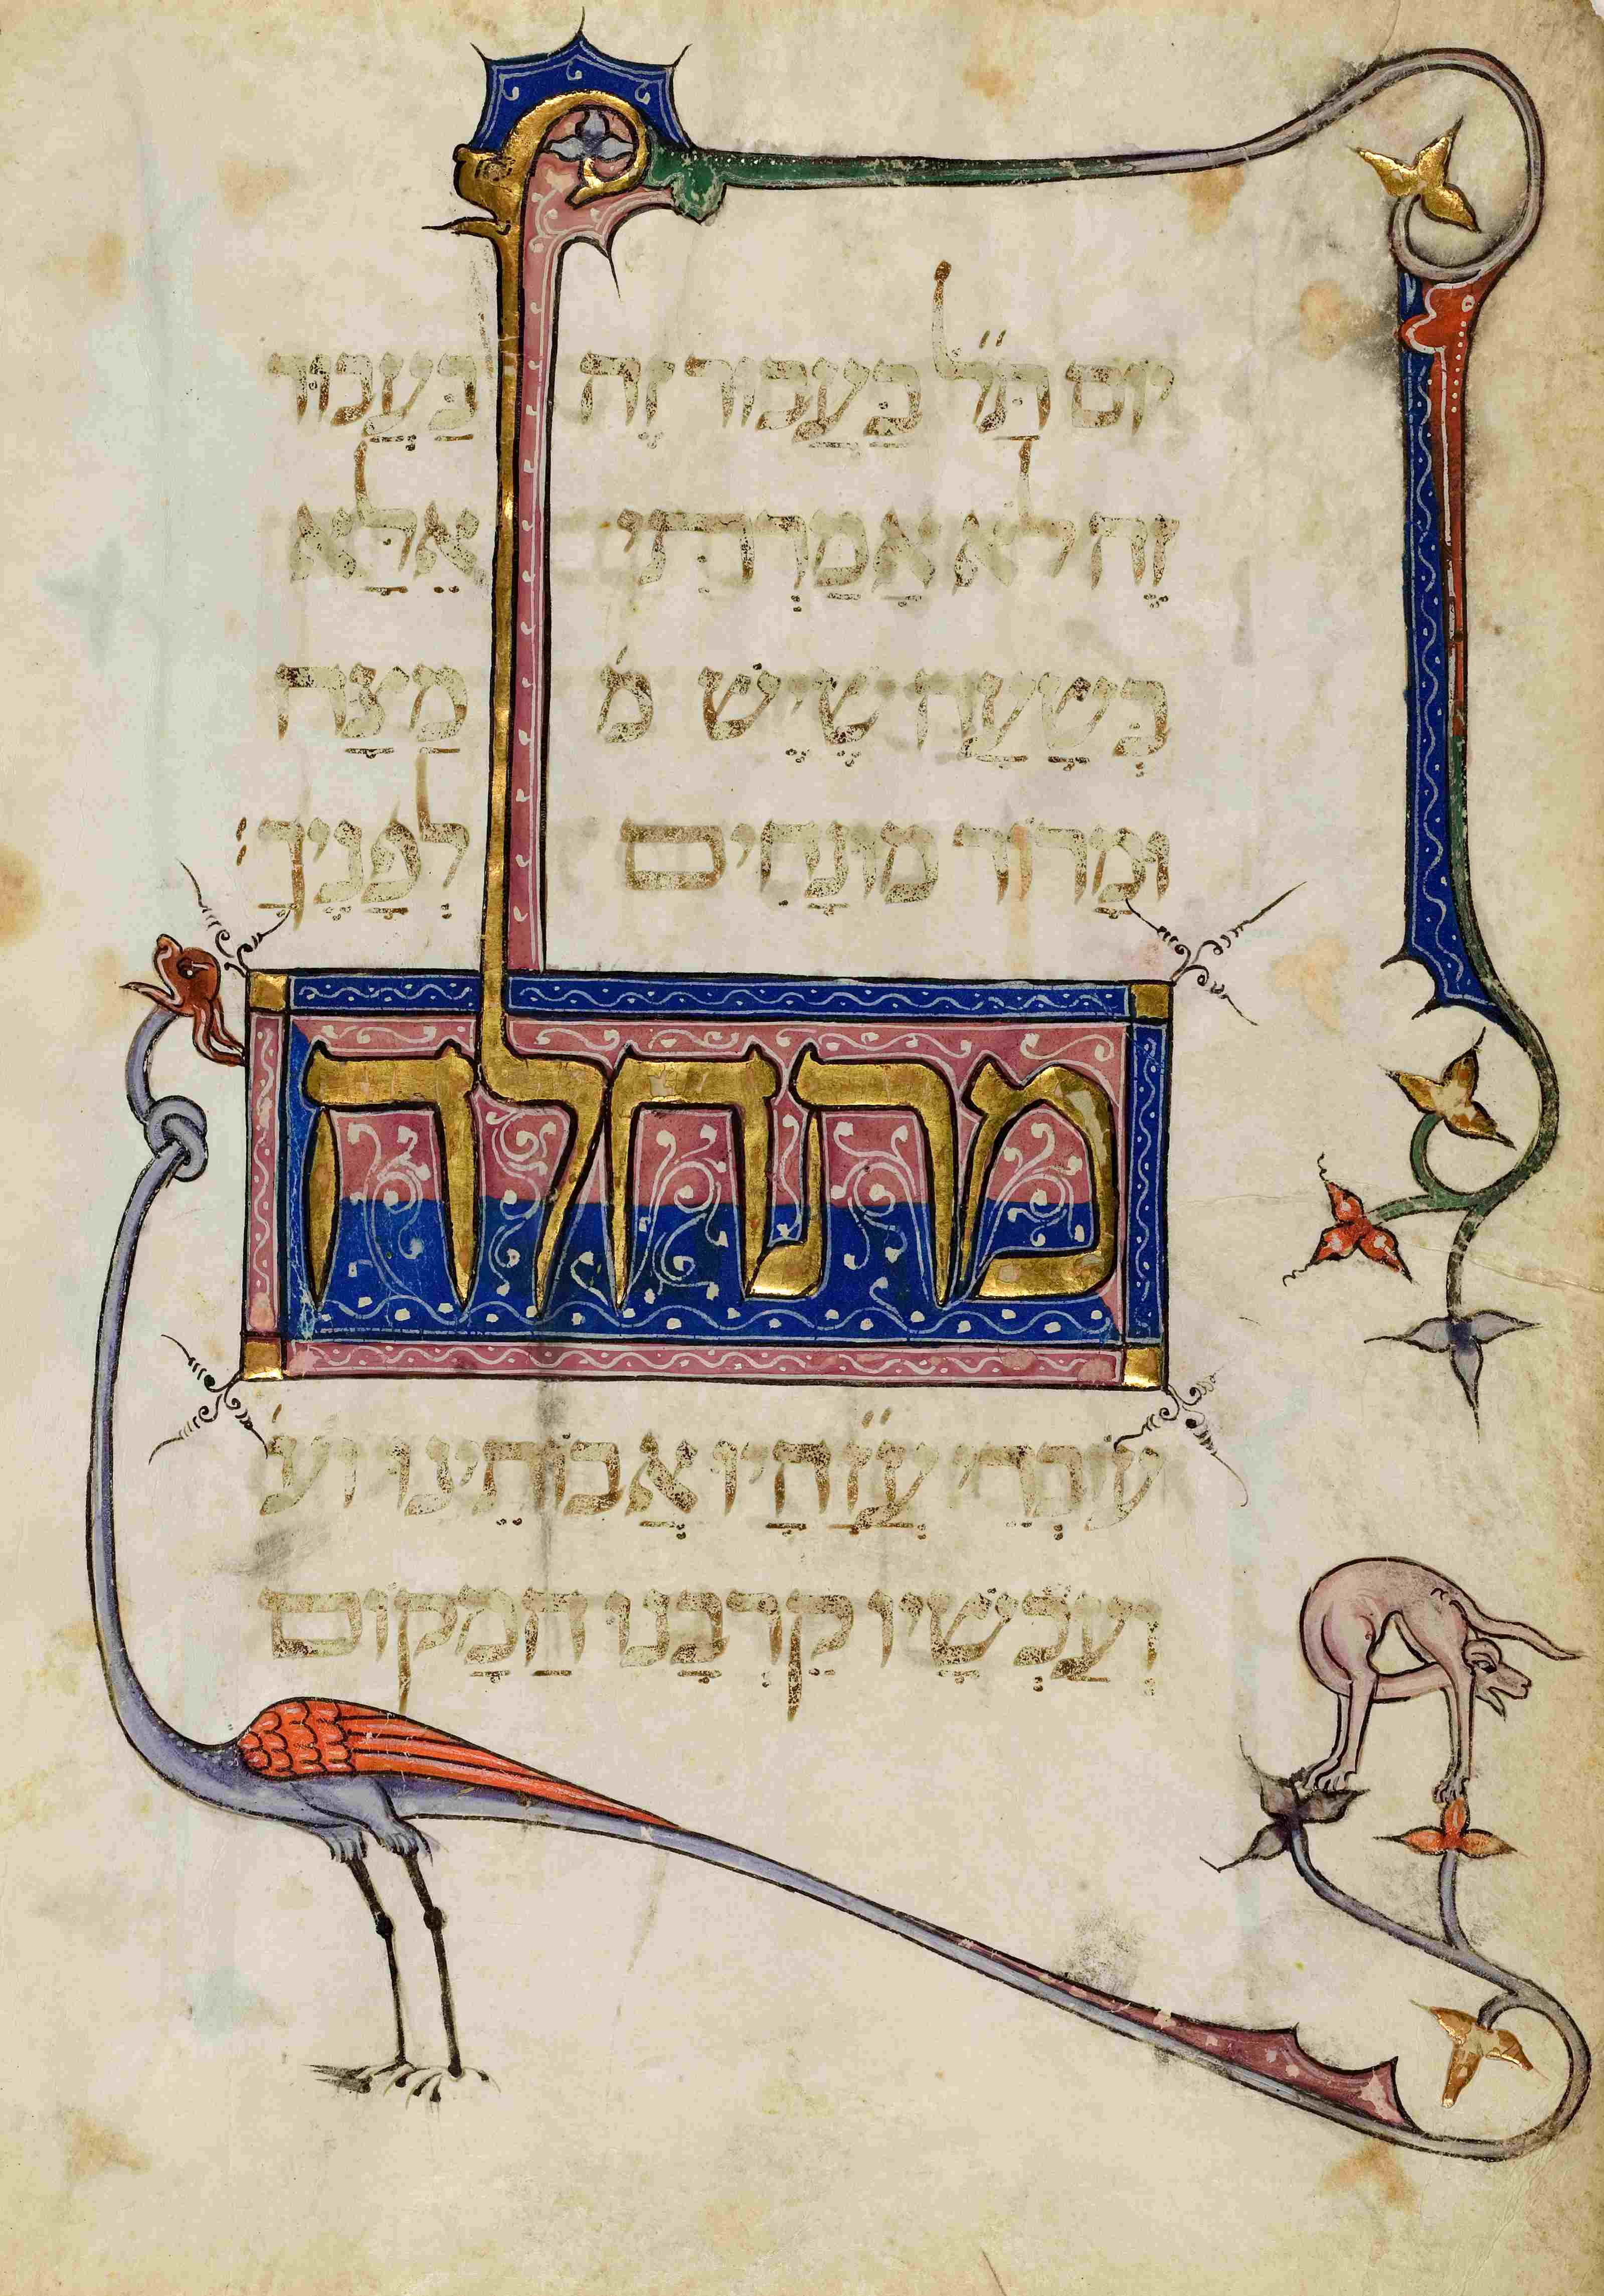 יוֹם תַּ״ל בַּעֲבוּר זֶה בַּעֲבוּר
זֶה לֹא אָמַרְתִּי אֶלָּא
בְּשָׁעָה שֶׁיֵּשׁ מ׳ מַצָּה
וּמָרוֹר מוּנָּחִים לְפָנֶיךָ:
מתחלה
עוֹבְדֵי ע״ז הָיוּ אֲבוֹתֵינוּ וע׳
וְעַכְשָׁיו קֵרְבָנוּ הַמָּקוֹם